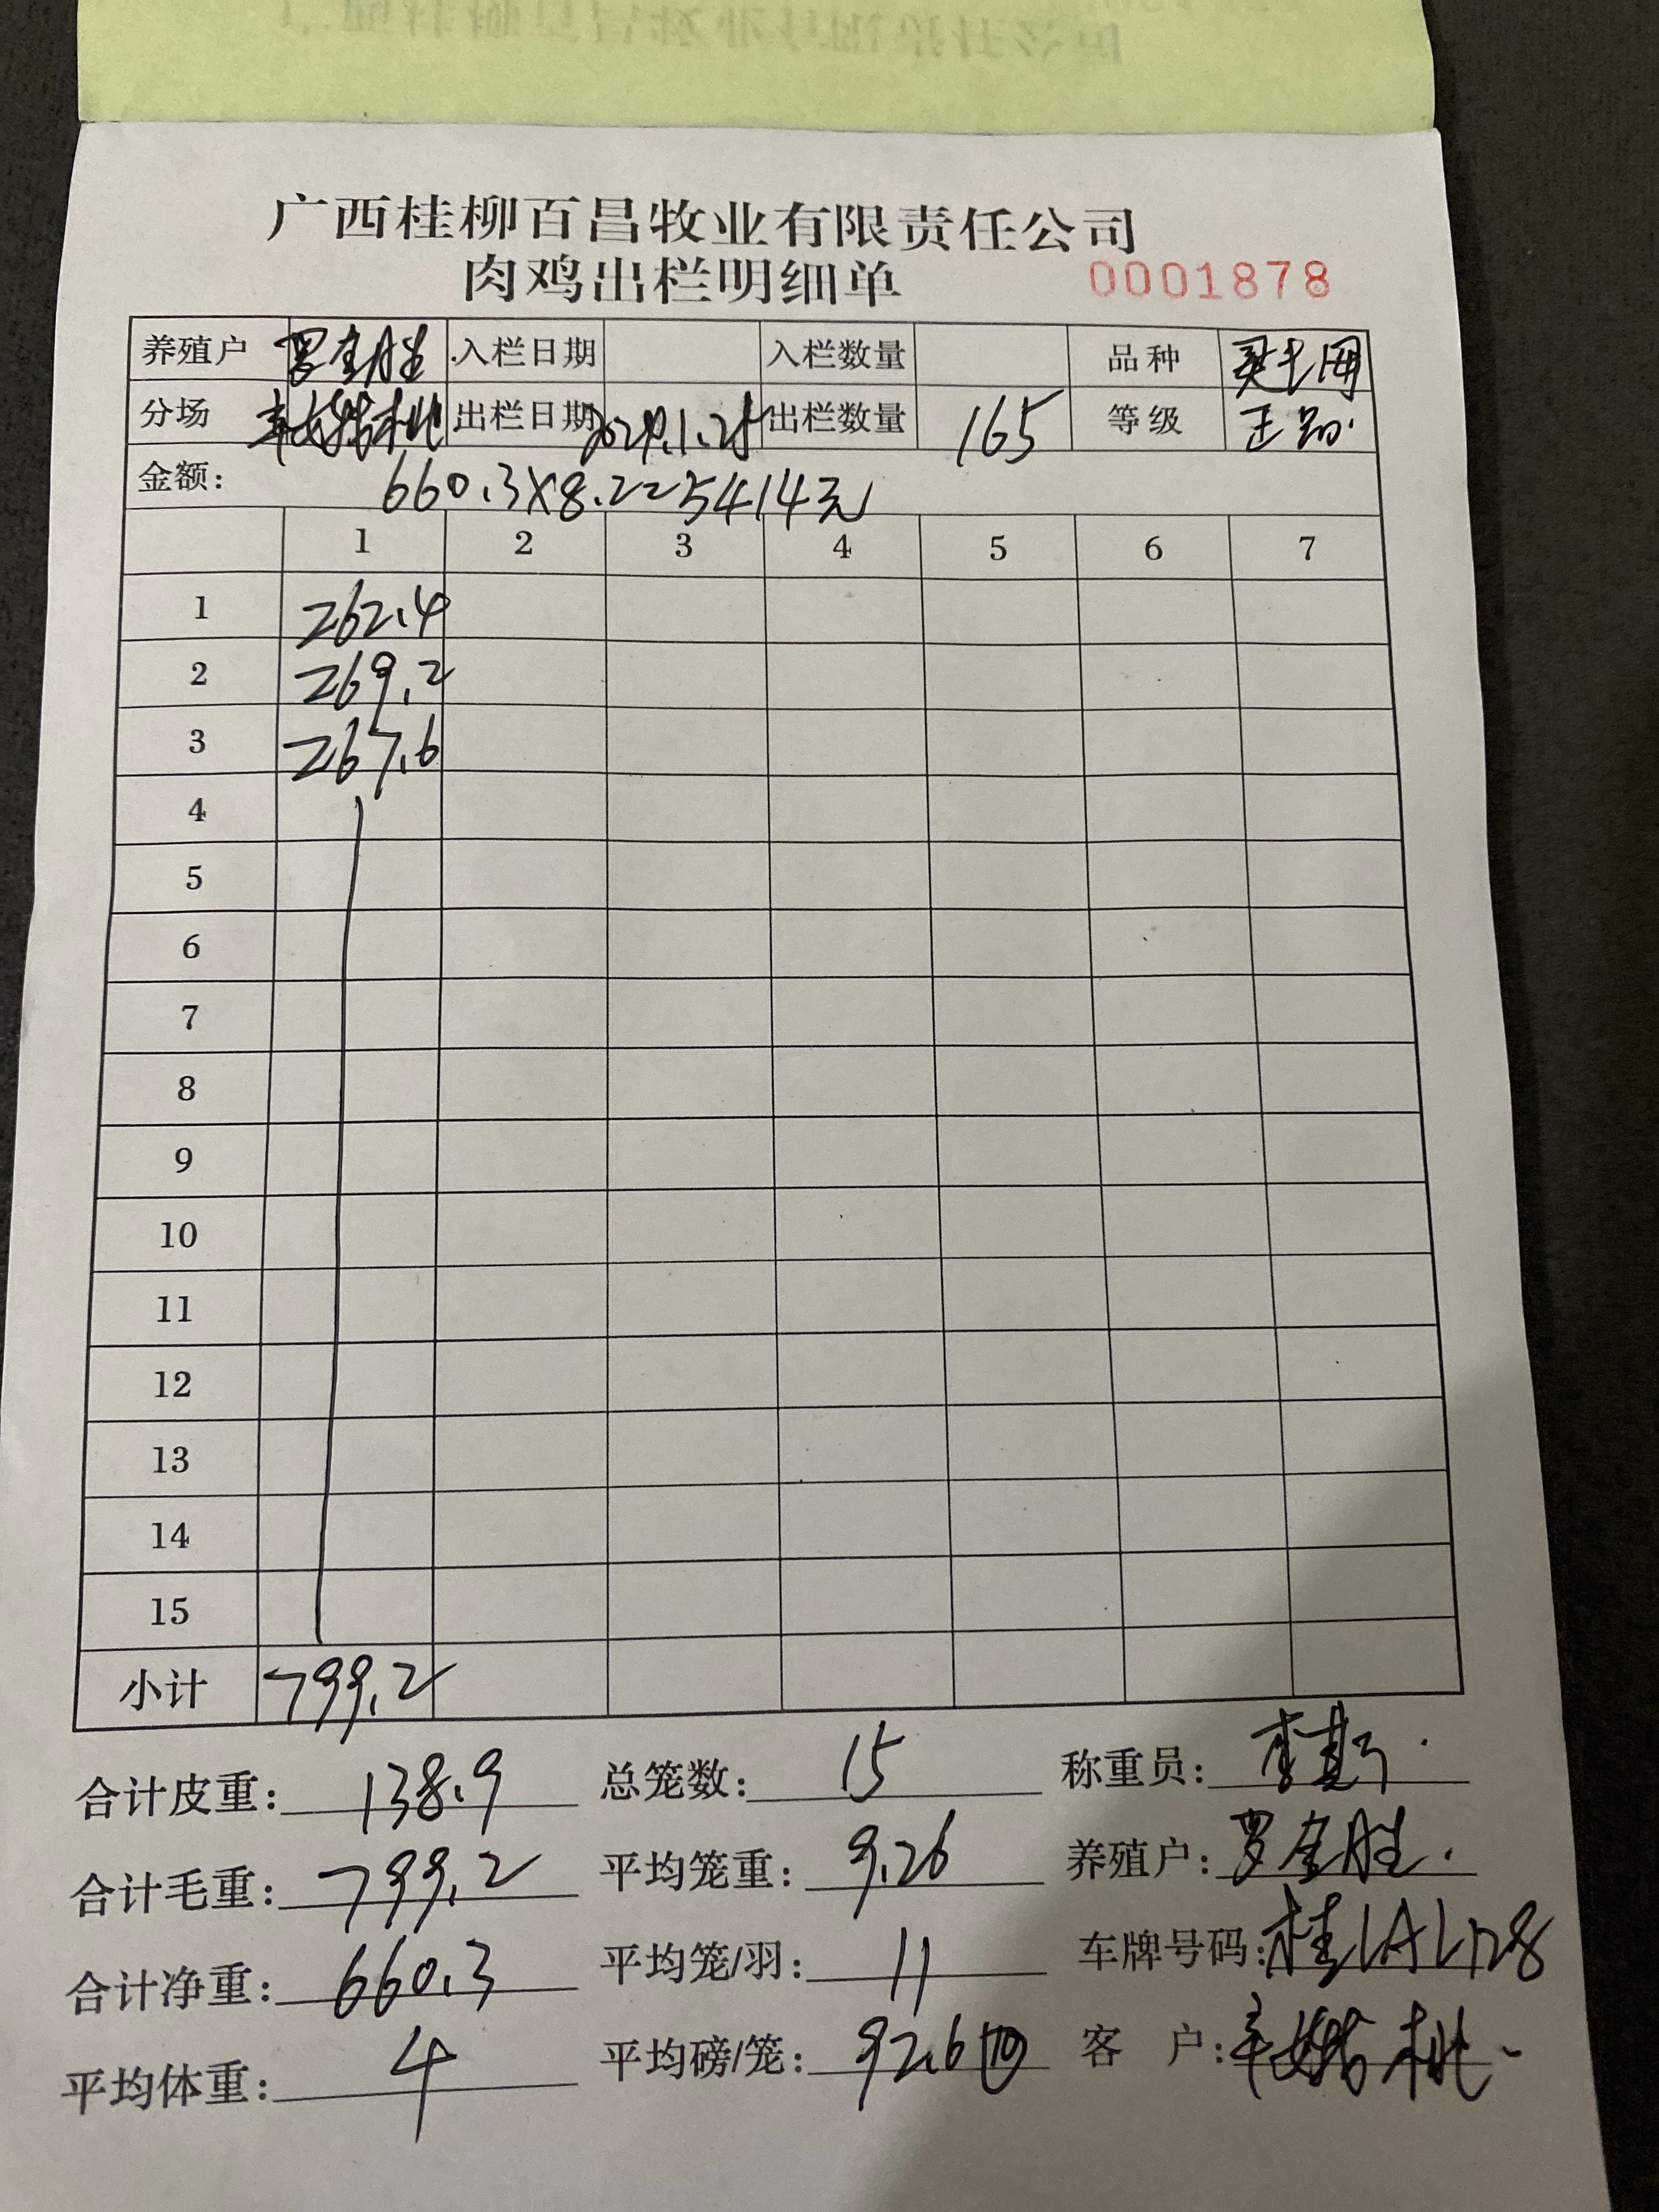 广西桂柳百昌牧业有限责任公司
肉鸡出栏明细单 0001878
养殖户 罗金胜 入栏日期 入栏数量 品种
分场 出栏日期 2024.1.25 出栏数量 165 等级
金额: 660.3×8.2=5414元
1 2 3 4 5 6 7
1 262.4
2 269.2
3 267.6
4
5
6
7
8
9
10
11
12
13
14
15
小计 799.2
合计皮重: 138.9 总笼数: 15 称重员:
合计毛重: 799.2 平均笼重: 9.26 养殖户: 罗金胜
合计净重: 660.3 平均笼/羽: 11 车牌号码:
平均体重: 4 平均磅/笼: 92.6 客 户: